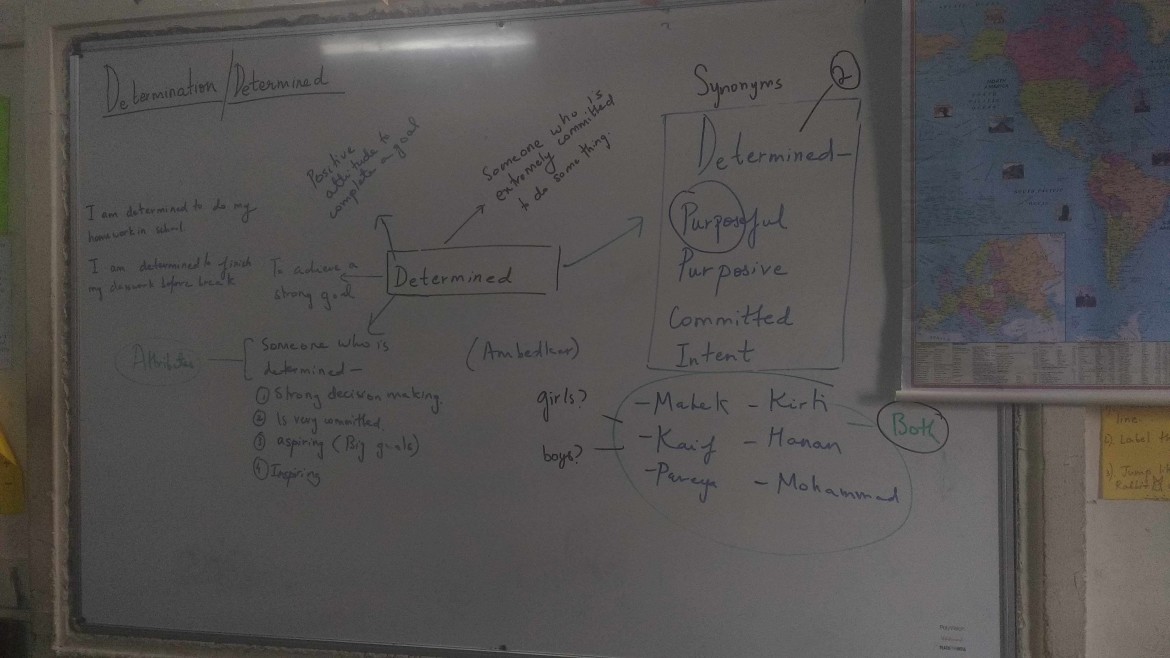 Determination/Determined
Positive
attitude to
complete a goal
Someone who is
extremely committed
to do some thing.
I am determined to do my
homework in school.
I am determined to finish
my classwork before break
To achieve a
strong goal
Determined
Attributes
Someone who is
determined-
① Strong decision making.
② Is very committed.
③ aspiring (Big goals)
④ Inspiring
(Ambedkar)
Synonyms
2
Determined-
Purposeful
Purposive
Committed
Intent
girls?
boys?
-Mahek - Kirti
-Kaif - Hanan
- Mohammad
Both
line
Label
Jump